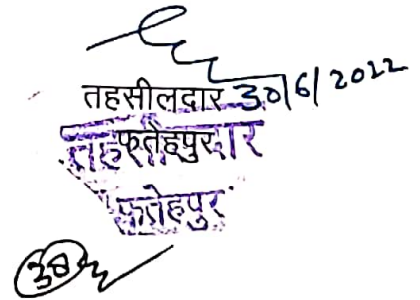 तहसीलदार 30/6/2022
फतेहपुर
तहसीलदार
फतेहपुर